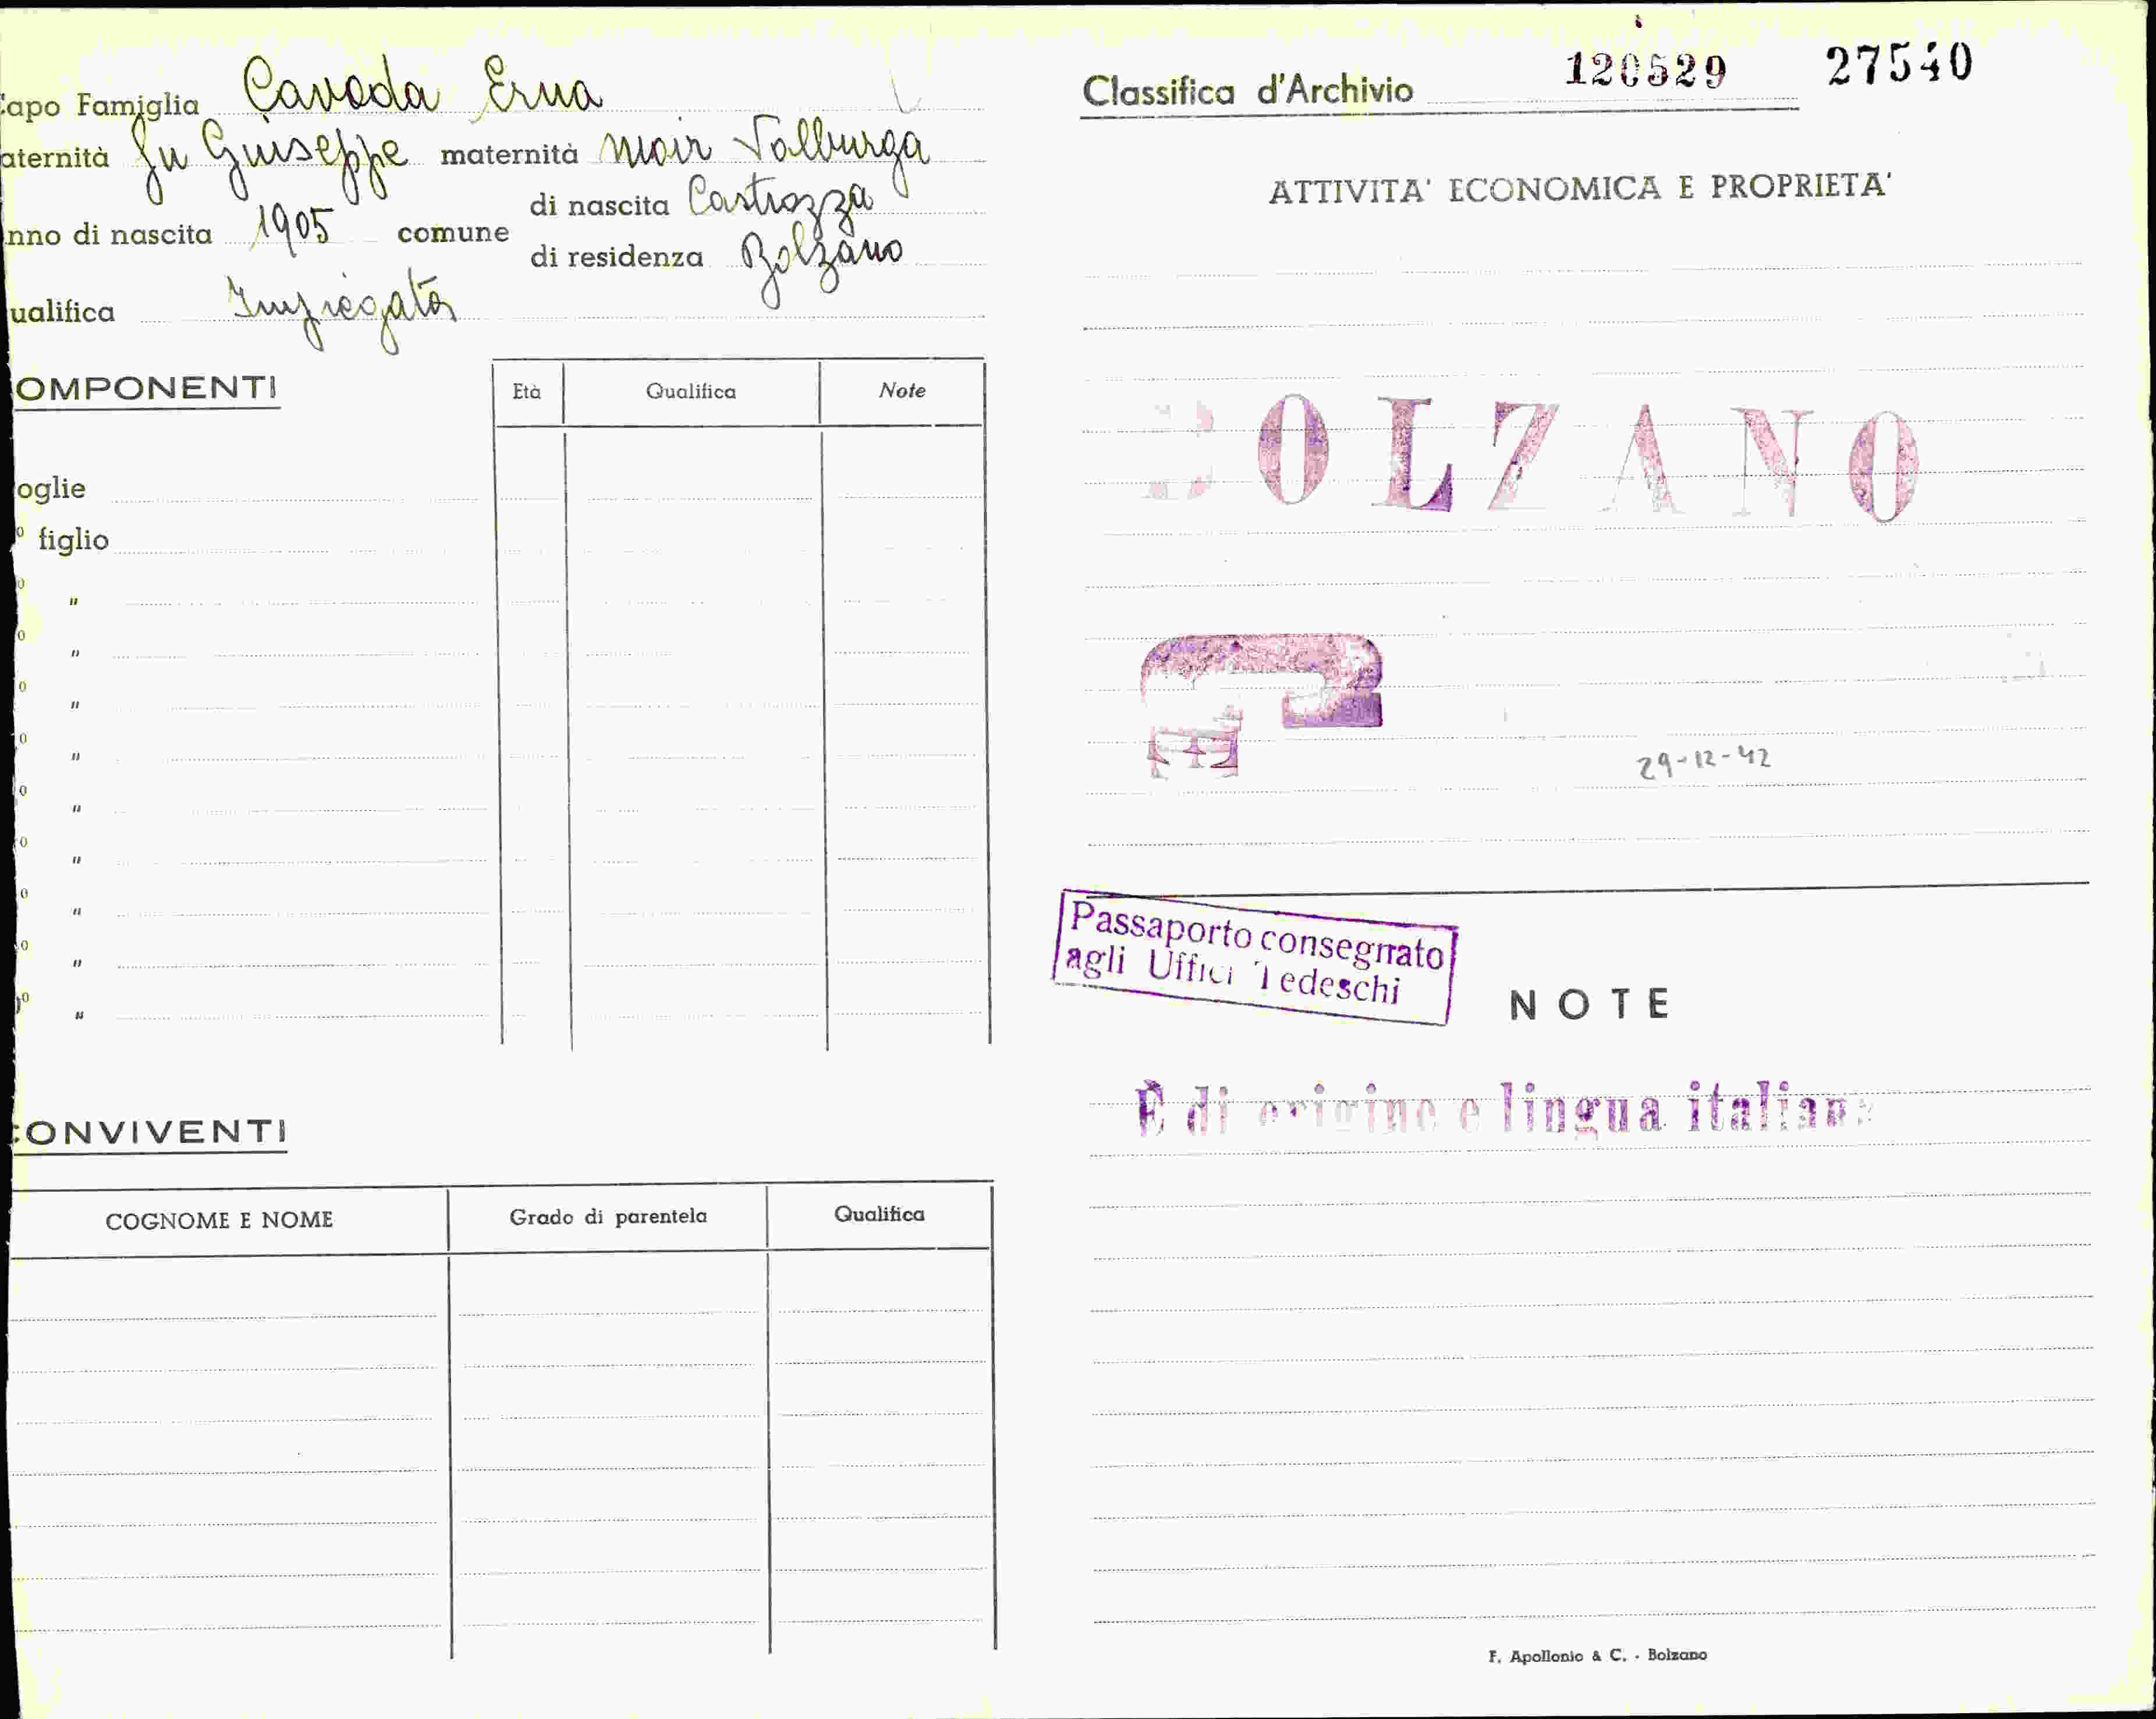 Capo Famiglia Cavada Erna
aternità fu Guiseppe maternità Moir Valburga
nno di nascita 1905 comune di nascita Castrozza
di residenza Bolzano
ualifica Impiegata
OMPONENTI Età Qualifica Note
oglie
º figlio
º "
º "
º "
º "
º "
º "
º "
º "
º "
CONVIVENTI
COGNOME E NOME Grado di parentela Qualifica
Classifica d'Archivio 120529 27540
ATTIVITA' ECONOMICA E PROPRIETA'
BOLZANO
29-12-42
Passaporto consegnato
agli Uffici Tedeschi
NOTE
È di origine e lingua italiana
F. Apollonio & C. - Bolzano